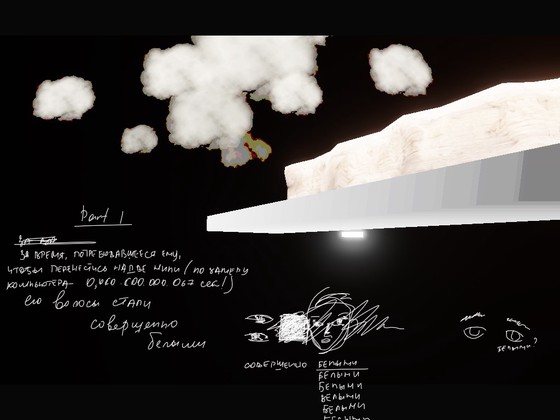 Part 1
ЗА ВРЕМЯ, ПОТРЕБОВАВШЕЕСЯ ЕМУ,
ЧТОБЫ ПЕРЕНЕСТИСЬ НА ДВЕ МИЛИ (ПО
КОМПЬЮТЕРА- 0,000 000 000 067 сек!)
его волосы стали
совершенно
белыми
СОВЕРШЕННО БЕЛЫМИ
БЕЛЫМИ
БЕЛЫМИ
БЕЛЫМИ
БЕЛЫМИ
БЕЛЫМИ?